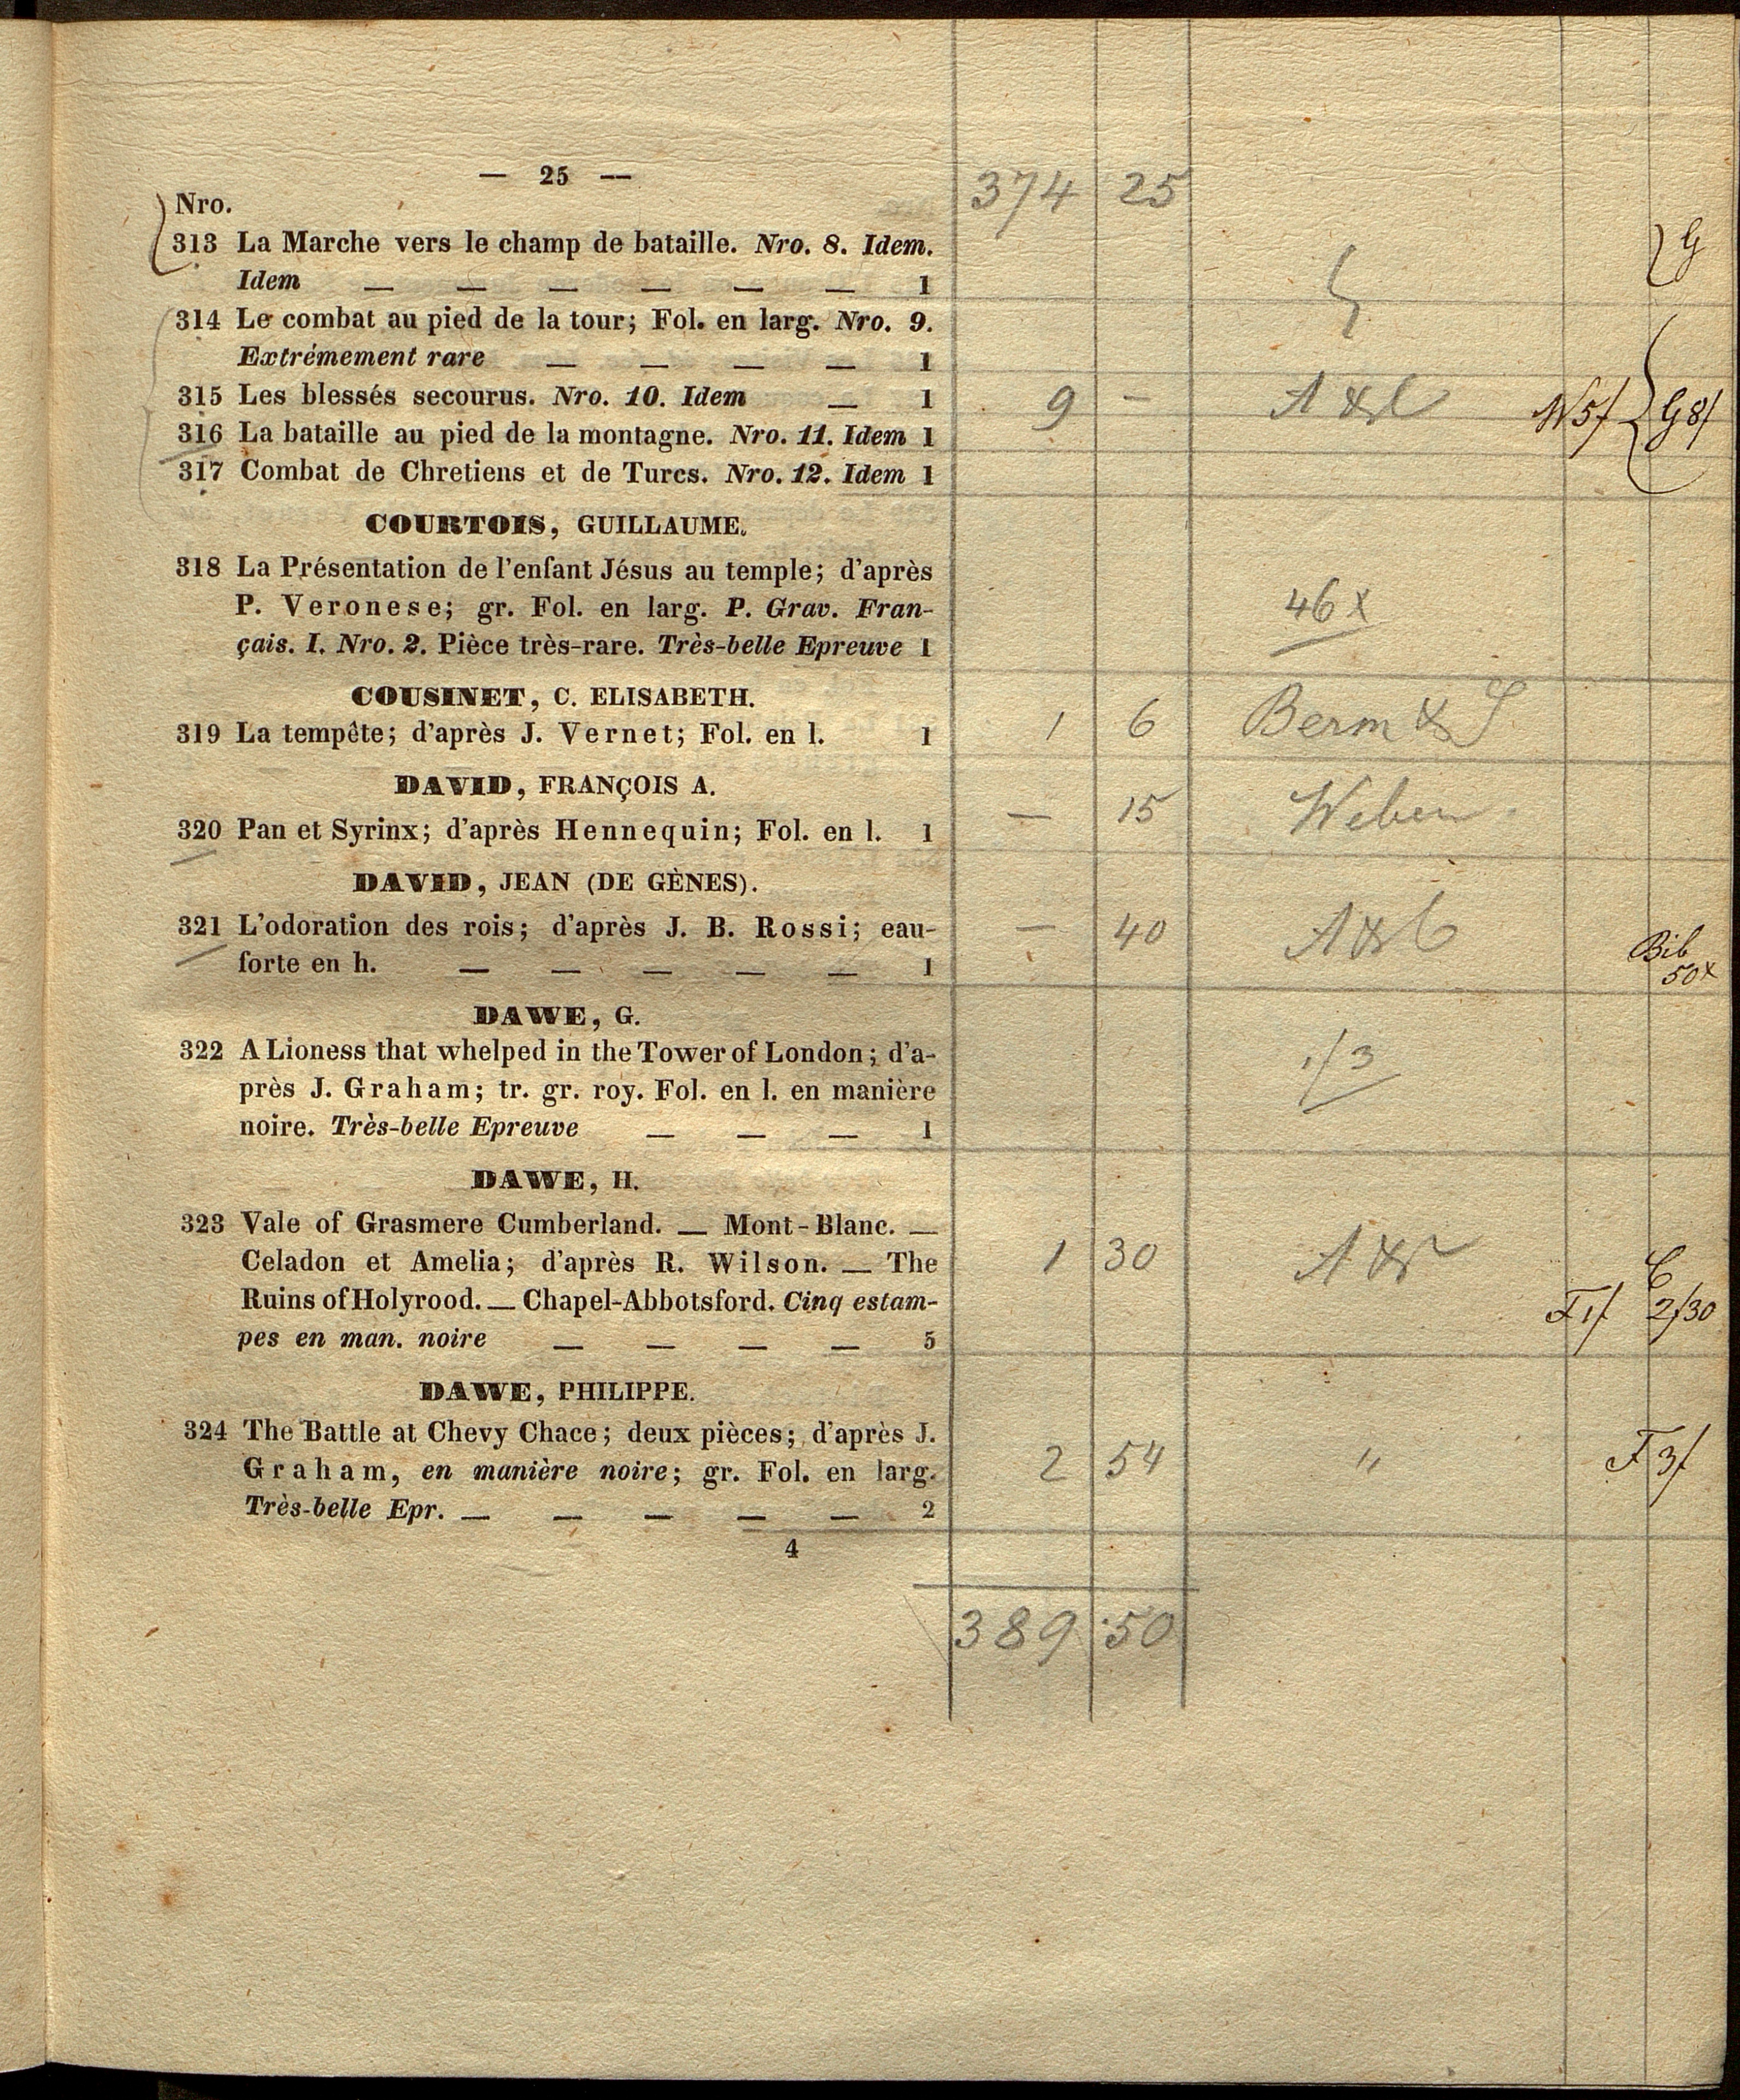 — 25 —
374 25
Nro.
313 La Marche vers le champ de bataille. Nro. 8. Idem.
Idem — — — — — — 1
G
314 Le combat au pied de la tour; Fol. en larg. Nro. 9.
Extrêmement rare — — — — 1
315 Les blessés secourus. Nro. 10. Idem — 1
9 —
W 5f G 8f
316 La bataille au pied de la montagne. Nro. 11. Idem 1
317 Combat de Chretiens et de Turcs. Nro. 12. Idem 1
COURTOIS, GUILLAUME.
318 La Présentation de l'enfant Jésus au temple; d'après
P. Veronese; gr. Fol. en larg. P. Grav. Fran-
çais. I. Nro. 2. Pièce très-rare. Très-belle Epreuve 1
46 x
COUSINET, C. ELISABETH.
319 La tempête; d'après J. Vernet; Fol. en l. 1
1 6 Berm & S
DAVID, FRANÇOIS A.
320 Pan et Syrinx; d'après Hennequin; Fol. en l. 1
— 15 Weber
DAVID, JEAN (DE GÈNES).
321 L'odoration des rois; d'après J. B. Rossi; eau-
forte en h. — — — — — 1
— 40 A & C
Bib
50x
DAWE, G.
322 A Lioness that whelped in the Tower of London; d'a-
près J. Graham; tr. gr. roy. Fol. en l. en manière
noire. Très-belle Epreuve — — — 1
1/3
DAWE, H.
323 Vale of Grasmere Cumberland. — Mont-Blanc. —
Celadon et Amelia; d'après R. Wilson. — The
Ruins of Holyrood. — Chapel-Abbotsford. Cinq estam-
pes en man. noire — — — — 5
1 30
F 1f C 2/30
DAWE, PHILIPPE.
324 The Battle at Chevy Chace; deux pièces; d'après J.
Graham, en manière noire; gr. Fol. en larg.
Très-belle Epr. — — — — — 2
2 54 "
F 3f
4
389 50